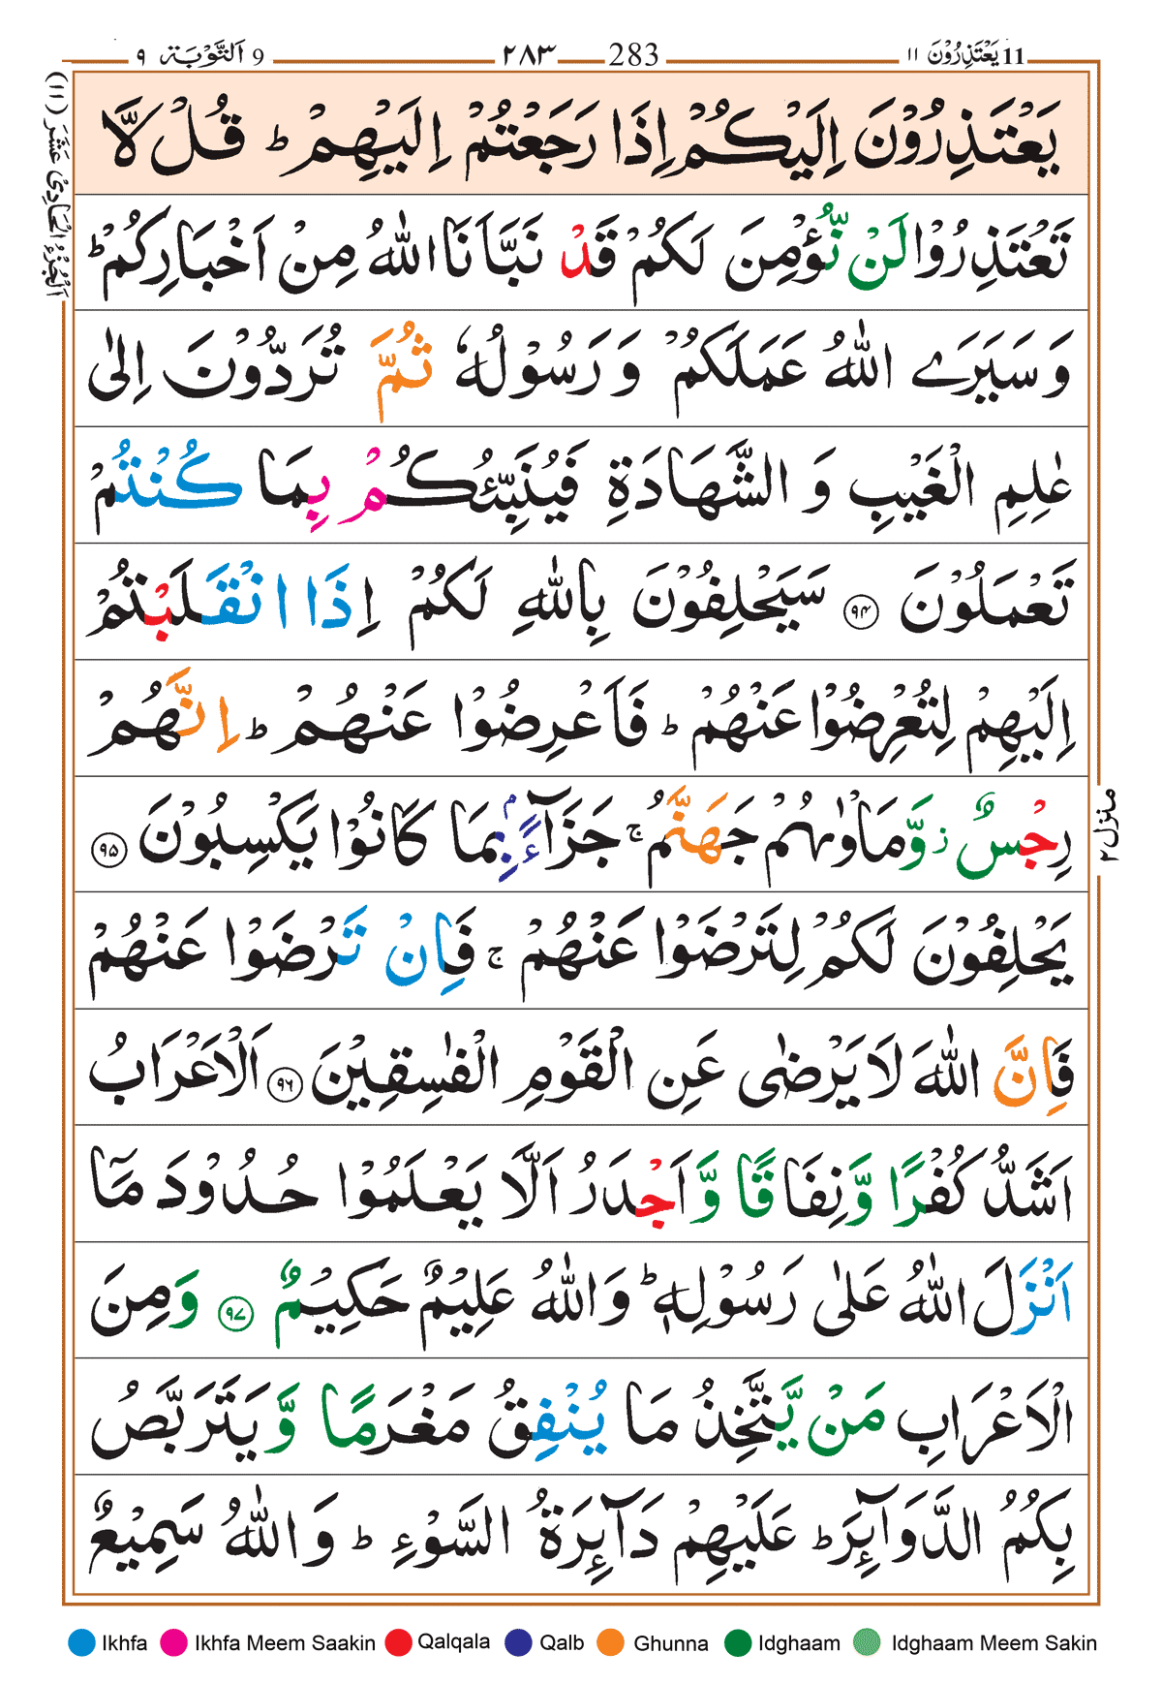 يَعْتَذِرُوْنَ ١١ 11
٢٨٣ 283
اَلتَّوْبَة ٩ 9
اَلْجُزْءُ الْحَادِىْ عَشَرَ (١١)
يَعْتَذِرُوْنَ اِلَيْكُمْ اِذَا رَجَعْتُمْ اِلَيْهِمْ ؕ قُلْ لَّا
تَعْتَذِرُوْا لَنْ نُّؤْمِنَ لَكُمْ قَدْ نَبَّاَنَا اللّٰهُ مِنْ اَخْبَارِكُمْ ؕ
وَ سَيَرَے اللّٰهُ عَمَلَكُمْ وَ رَسُوْلُهٗ ثُمَّ تُرَدُّوْنَ اِلٰى
عٰلِمِ الْغَيْبِ وَ الشَّهَادَةِ فَيُنَبِّئُكُمْ بِمَا كُنْتُمْ
تَعْمَلُوْنَ ۹۴ سَيَحْلِفُوْنَ بِاللّٰهِ لَكُمْ اِذَا انْقَلَبْتُمْ
اِلَيْهِمْ لِتُعْرِضُوْا عَنْهُمْ ؕ فَاَعْرِضُوْا عَنْهُمْ ؕ اِنَّهُمْ
رِجْسٌ ز وَّمَاْوٰىهُمْ جَهَنَّمُ ۚ جَزَآءًۢ بِمَا كَانُوْا يَكْسِبُوْنَ ۹۵
يَحْلِفُوْنَ لَكُمْ لِتَرْضَوْا عَنْهُمْ ۚ فَاِنْ تَرْضَوْا عَنْهُمْ
فَاِنَّ اللّٰهَ لَا يَرْضٰى عَنِ الْقَوْمِ الْفٰسِقِيْنَ ۹۶ اَلْاَعْرَابُ
اَشَدُّ كُفْرًا وَّنِفَاقًا وَّاَجْدَرُ اَلَّا يَعْلَمُوْا حُدُوْدَ مَآ
اَنْزَلَ اللّٰهُ عَلٰى رَسُوْلِهٖ ؕ وَاللّٰهُ عَلِيْمٌ حَكِيْمٌ ۹۷ وَمِنَ
الْاَعْرَابِ مَنْ يَّتَّخِذُ مَا يُنْفِقُ مَغْرَمًا وَّيَتَرَبَّصُ
بِكُمُ الدَّوَآئِرَ ؕ عَلَيْهِمْ دَآئِرَةُ السَّوْءِ ؕ وَاللّٰهُ سَمِيْعٌ
منزل ٢
Ikhfa Ikhfa Meem Saakin Qalqala Qalb Ghunna Idghaam Idghaam Meem Sakin